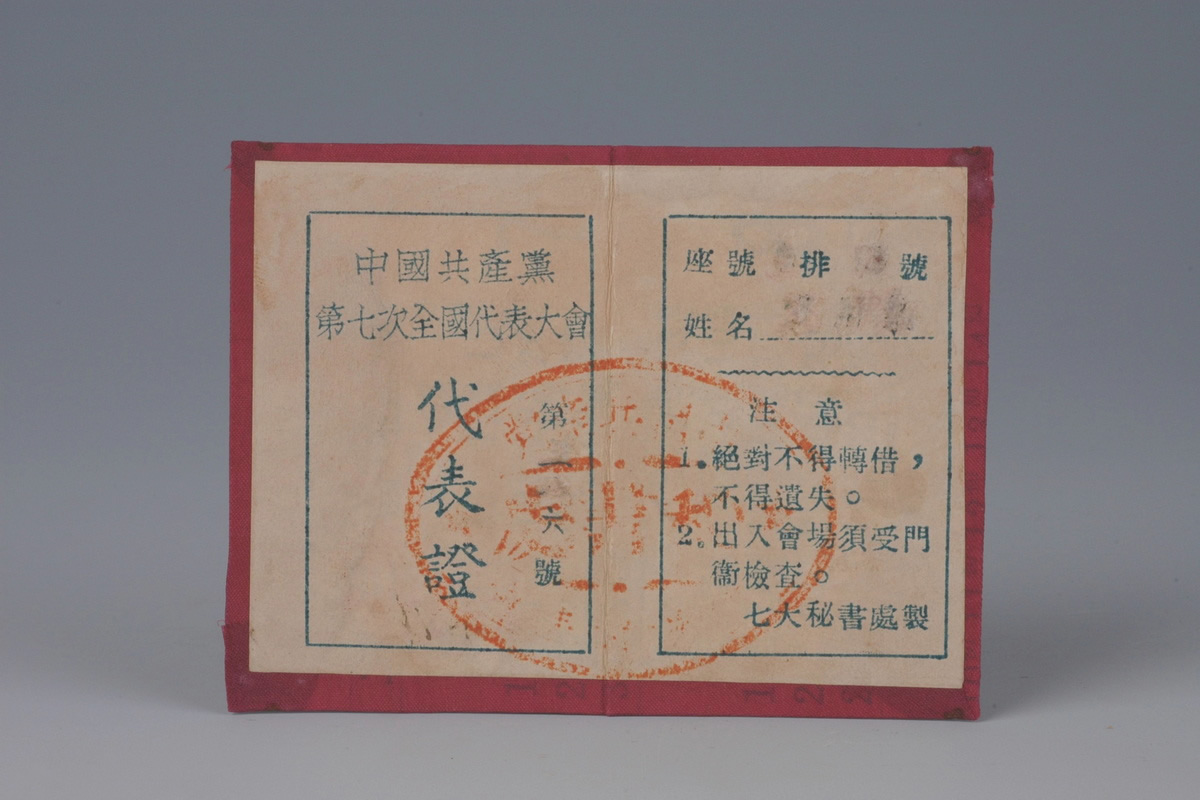 中國共產黨
第七次全國代表大會
代表證
第一六號
座號 排 號
姓名
注意
1.絕對不得轉借，
不得遺失。
2.出入會場須受門
衞檢查。
七大秘書處製